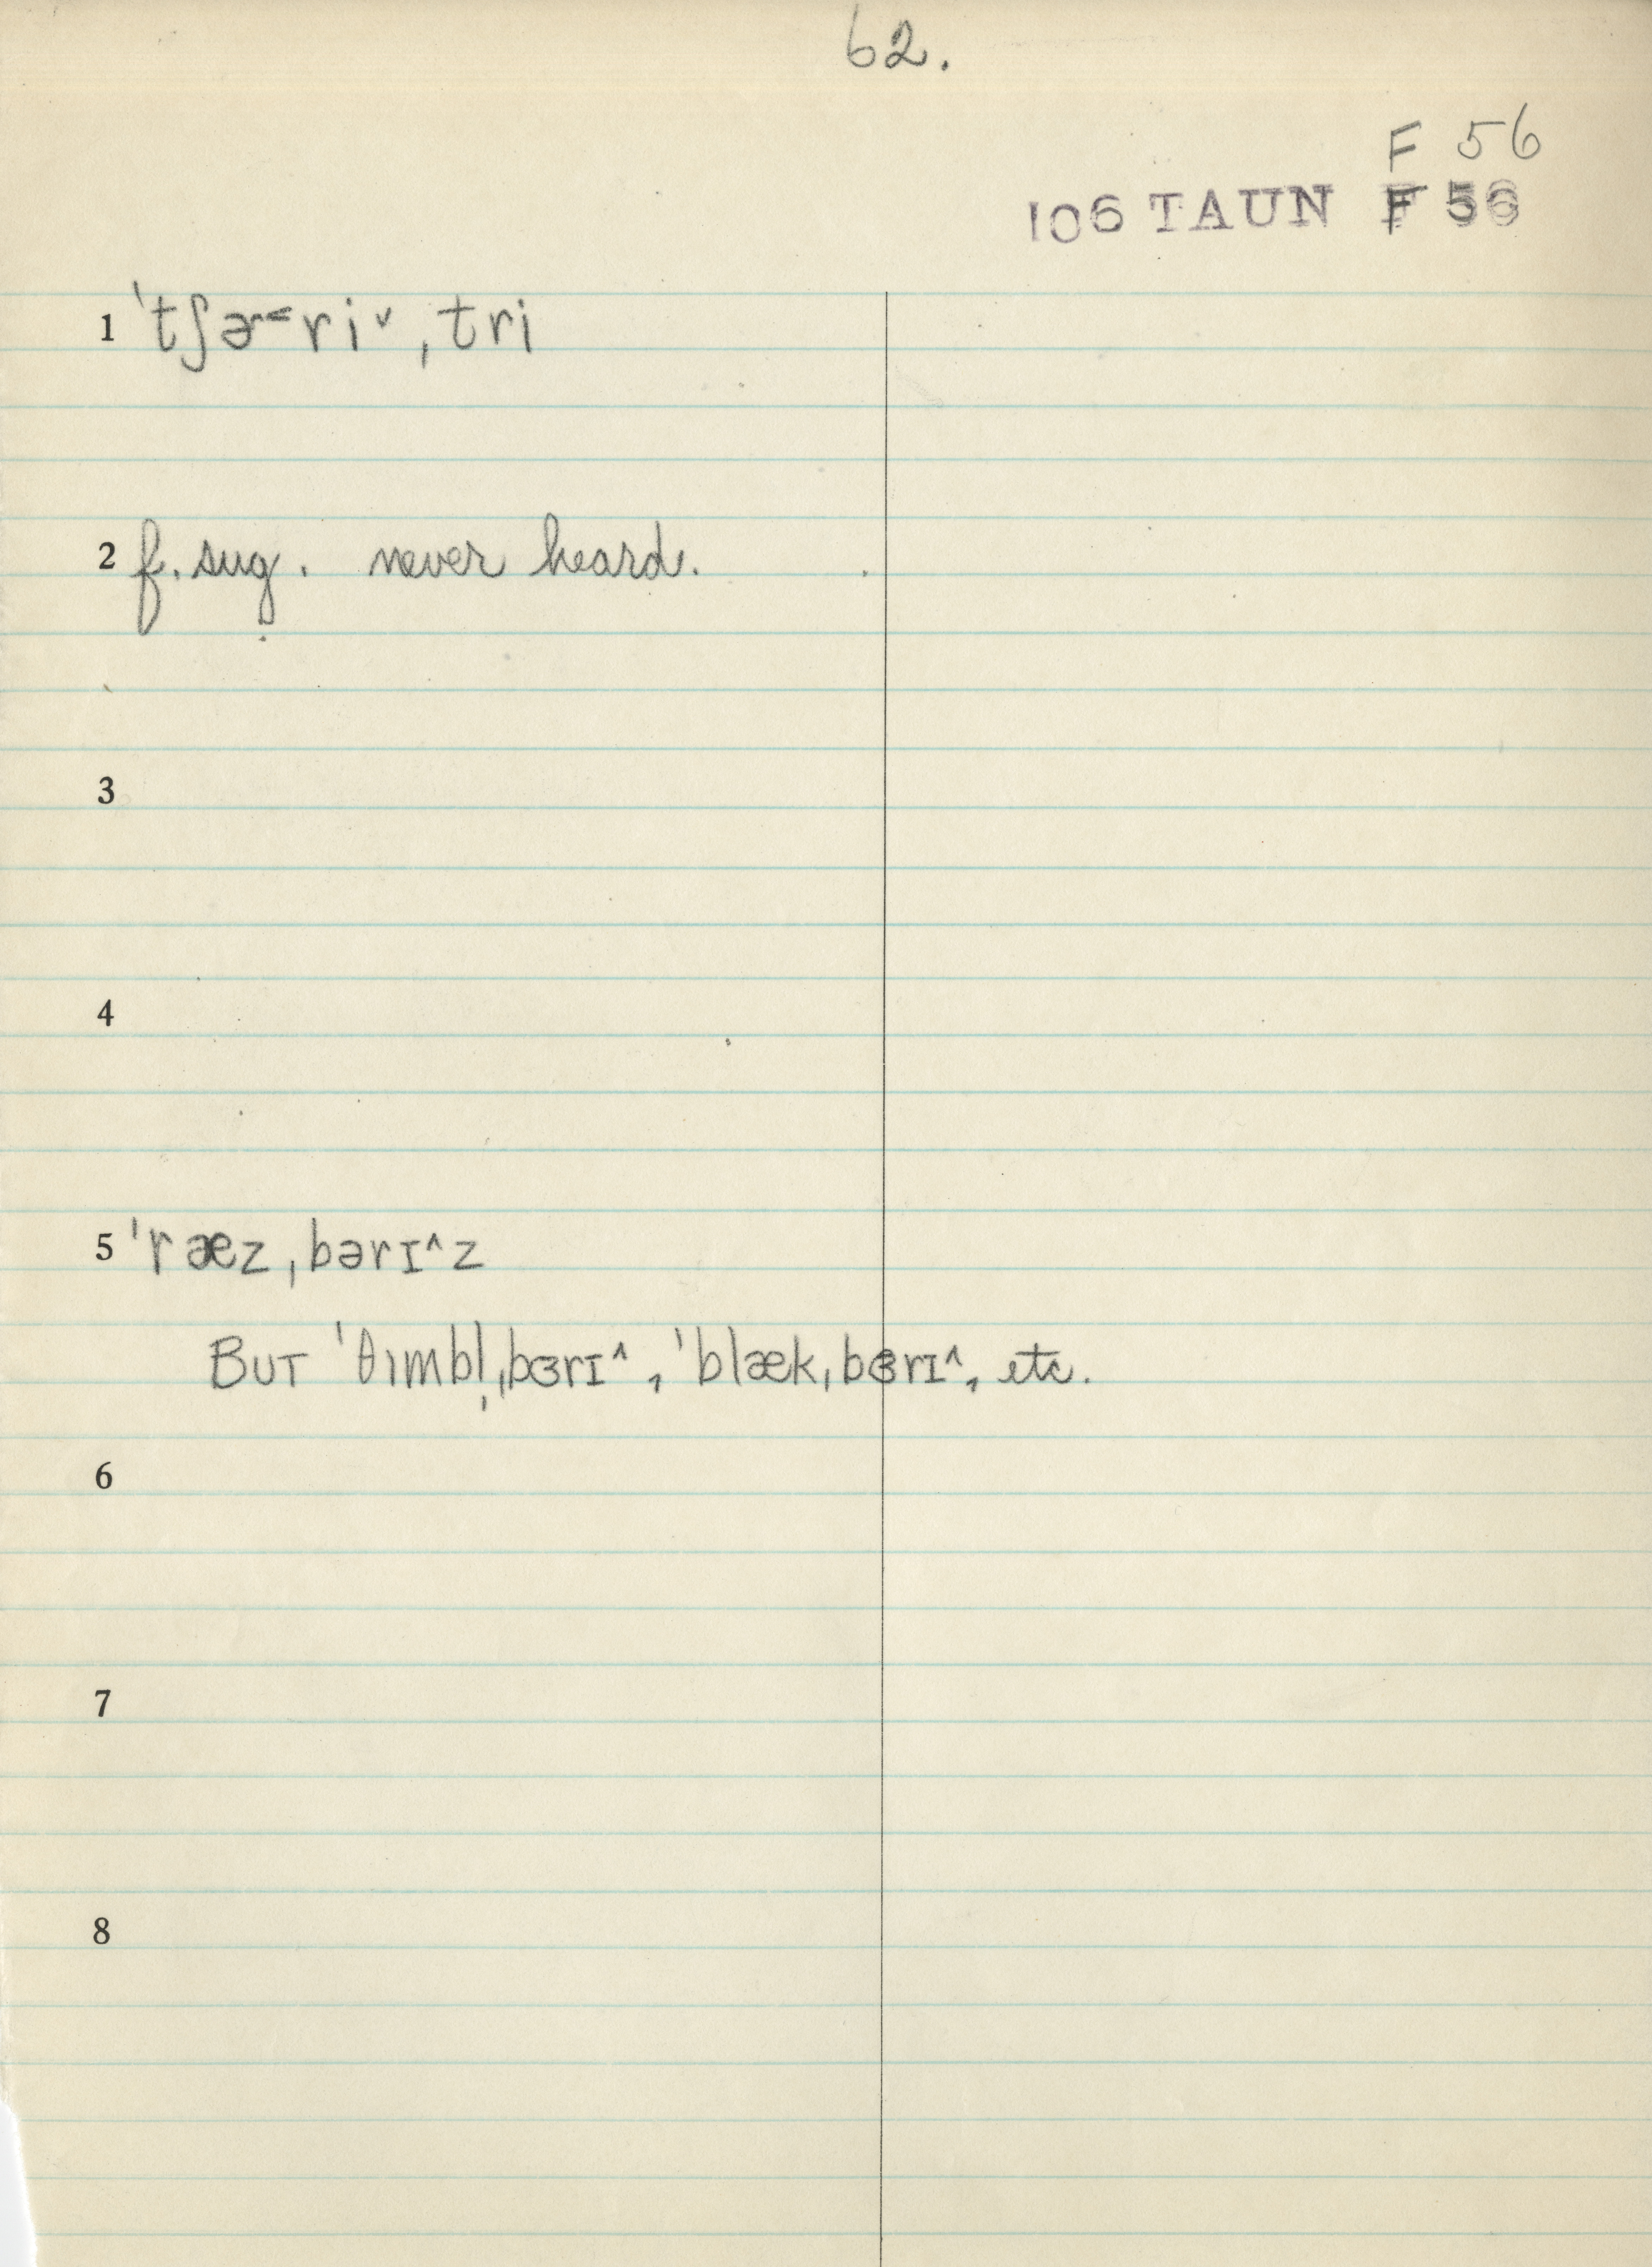 62.
F 56
106 TAUN F 56
1 ˈtʃɚ˂ri˅ˌtri
2 f. sug. never heard.
3
4
5 ˈræzˌbərɪ^z
BUT ˈθɪmbl̩ˌbɜrɪ^, ˈblækˌbɜrɪ^, etc.
6
7
8